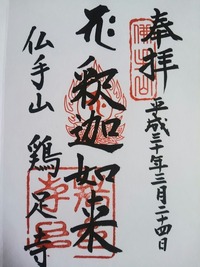 奉拝
平成三十年三月二十四日
釈迦如来
仏手山
鶏足寺